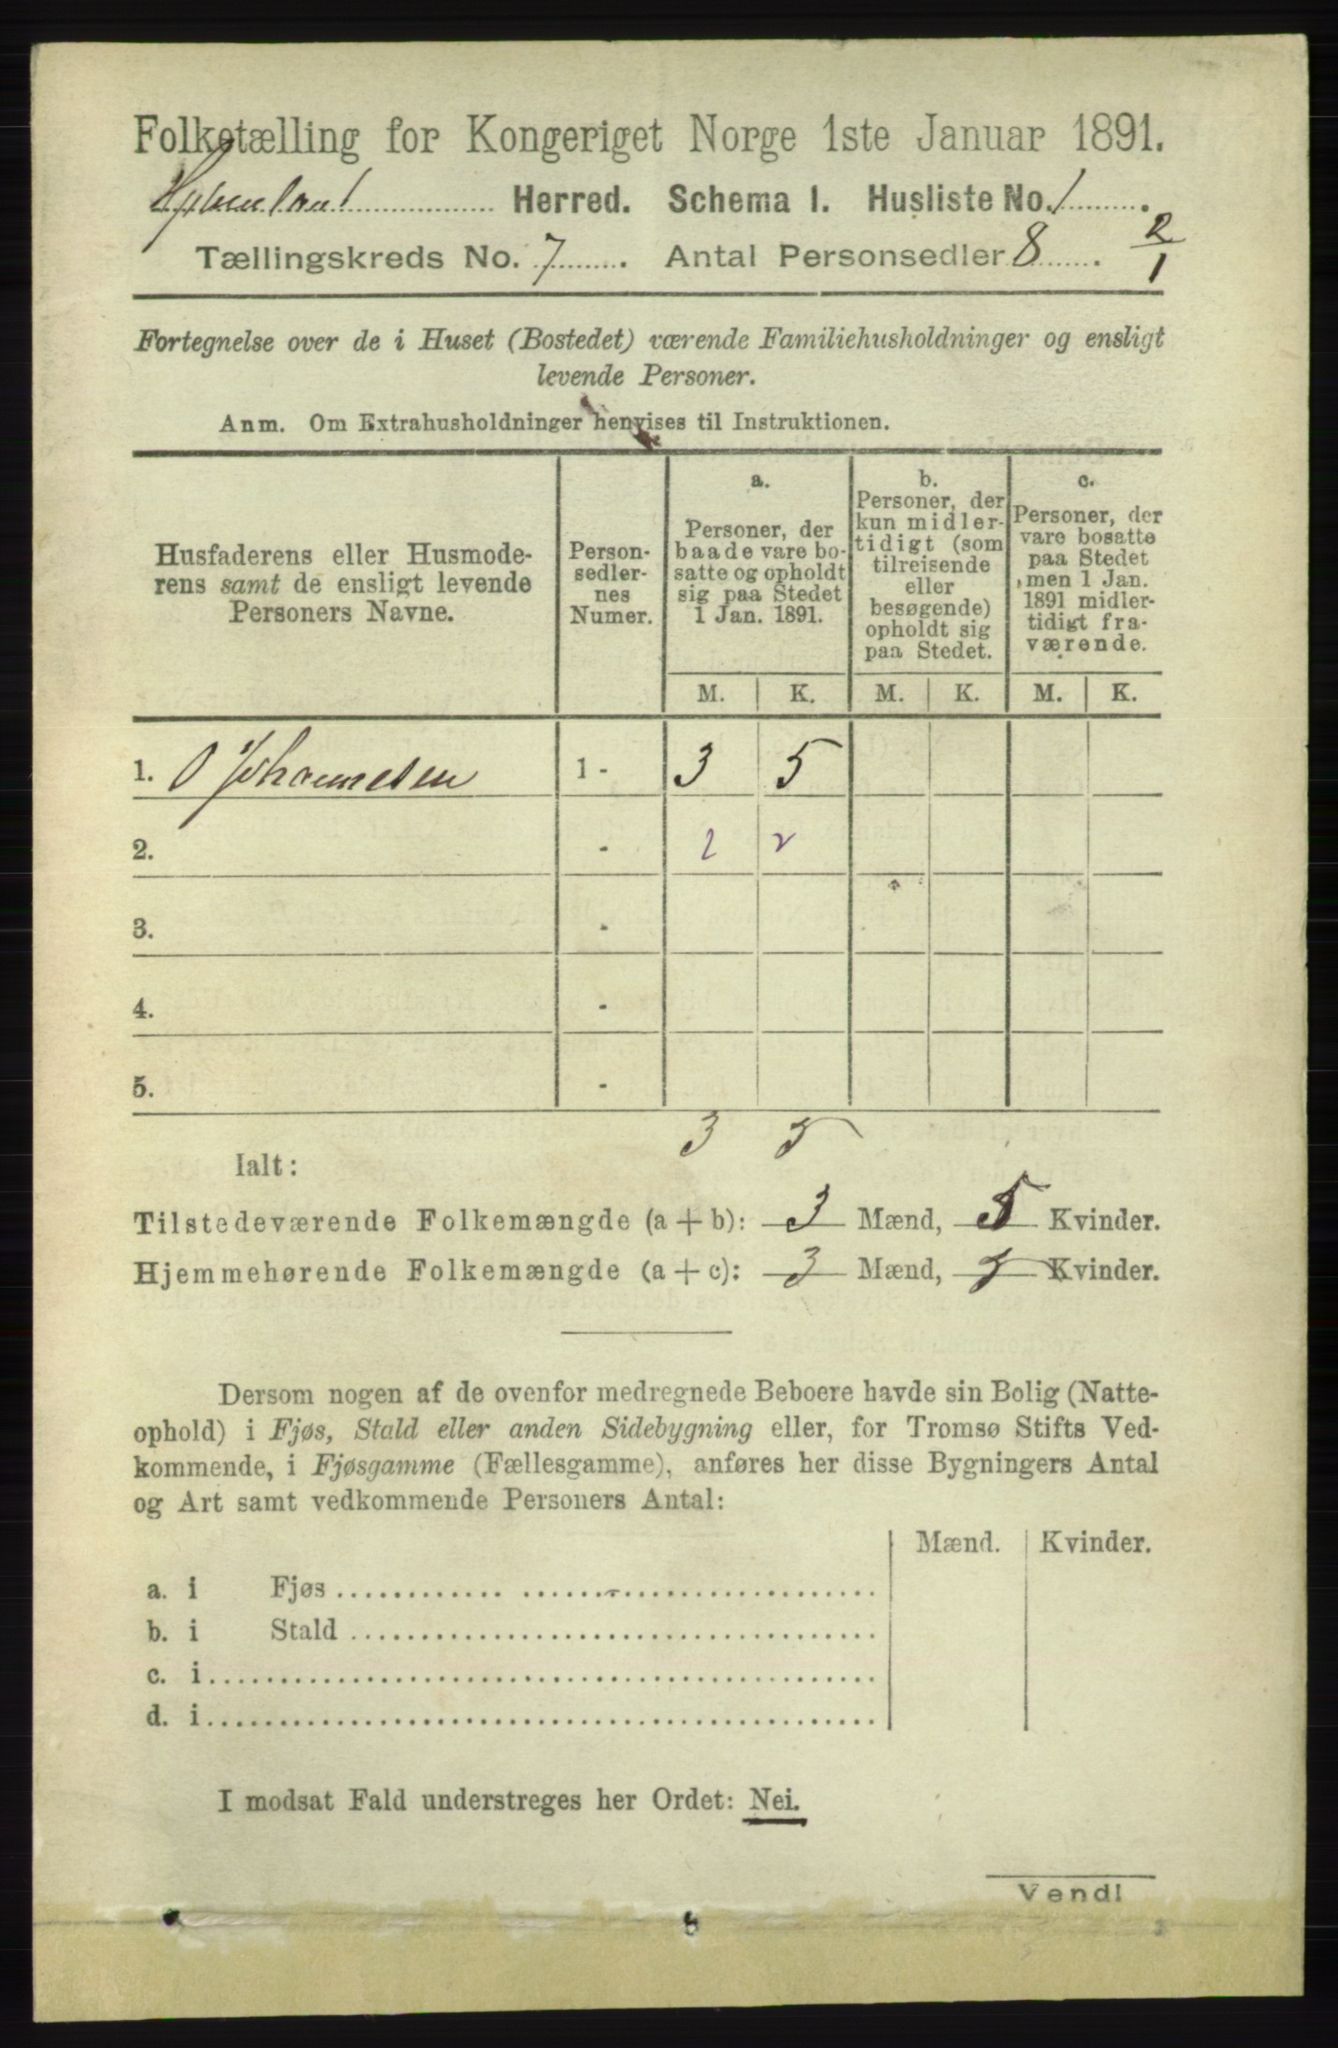 Folketælling for Kongeriget Norge 1ste Januar 1891.
Herred. Schema I. Husliste No. 1
Tællingskreds No. 7. Antal Personsedler 8. 2/1
Fortegnelse over de i Huset (Bostedet) værende Familiehusholdninger og ensligt
levende Personer.
Anm. Om Extrahusholdninger henvises til Instruktionen.
Husfaderens eller Husmode-
rens samt de ensligt levende
Personers Navne.
Person-
sedler-
nes
Numer.
a.
Personer, der
baade vare bo-
satte og opholdt
sig paa Stedet
1 Jan. 1891.
b.
Personer, der
kun midler-
tidigt (som
tilreisende
eller
besøgende)
opholdt sig
paa Stedet.
c.
Personer, der
vare bosatte
paa Stedet,
men 1 Jan.
1891 midler-
tidigt fra-
værende.
M. K. M. K. M. K.
1. O Johannesen 1 - 3 5
2. -
3. -
4. -
5. -
3 5
Ialt:
Tilstedeværende Folkemængde (a + b): 3 Mænd, 5 Kvinder.
Hjemmehørende Folkemængde (a + c): 3 Mænd, 5 Kvinder.
Dersom nogen af de ovenfor medregnede Beboere havde sin Bolig (Natte-
ophold) i Fjøs, Stald eller anden Sidebygning eller, for Tromsø Stifts Ved-
kommende, i Fjøsgamme (Fællesgamme), anføres her disse Bygningers Antal
og Art samt vedkommende Personers Antal:
Mænd. Kvinder.
a. i Fjøs
b. i Stald
c. i
d. i
I modsat Fald understreges her Ordet: Nei.
Vend!